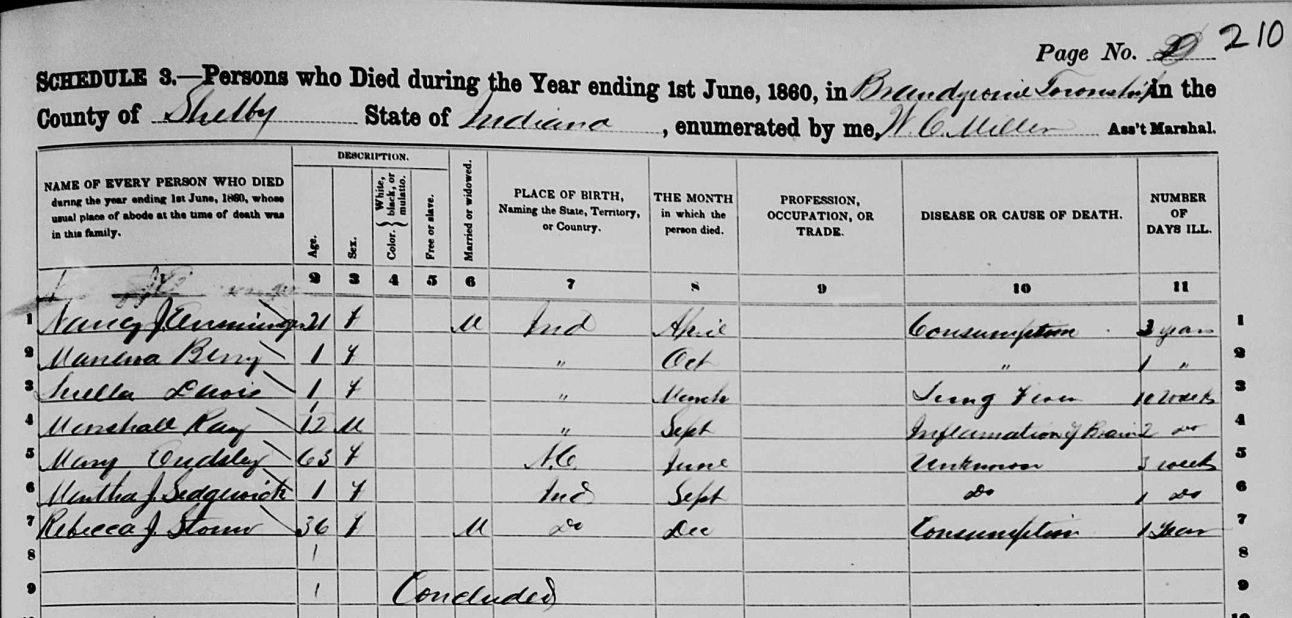 Page No. 210
SCHEDULE 3.—Persons who Died during the Year ending 1st June, 1860, in Brandywine Township in the
County of Shelby State of Indiana, enumerated by me, W. C. Miller Ass't Marshal.
NAME OF EVERY PERSON WHO DIED during the year ending 1st June, 1860, whose usual place of abode at the time of death was in this family.
DESCRIPTION.
Age.
Sex.
Color. { White, black, or mulatto.
Free or slave.
Married or widowed.
PLACE OF BIRTH, Naming the State, Territory, or Country.
THE MONTH in which the person died.
PROFESSION, OCCUPATION, OR TRADE.
DISEASE OR CAUSE OF DEATH.
NUMBER OF DAYS ILL.
1 2 3 4 5 6 7 8 9 10 11
1 Nancy J 21 f M Ind April Consumption 3 years 1
2 Berry 1 f " Oct " 1 " 2
3 Luella Lewis 1 f " March Lung Fever weeks 3
4 Marshall Ray 12 M " Sept Inflamation of Brain 2 do 4
5 Mary 63 f N.C. June Unknown 3 weeks 5
6 Martha J. Sedgewick 1 f Ind Sept do 1 do 6
7 Rebecca J. 36 f M do Dec Consumption 1 Year 7
8 8
9 Concluded 9